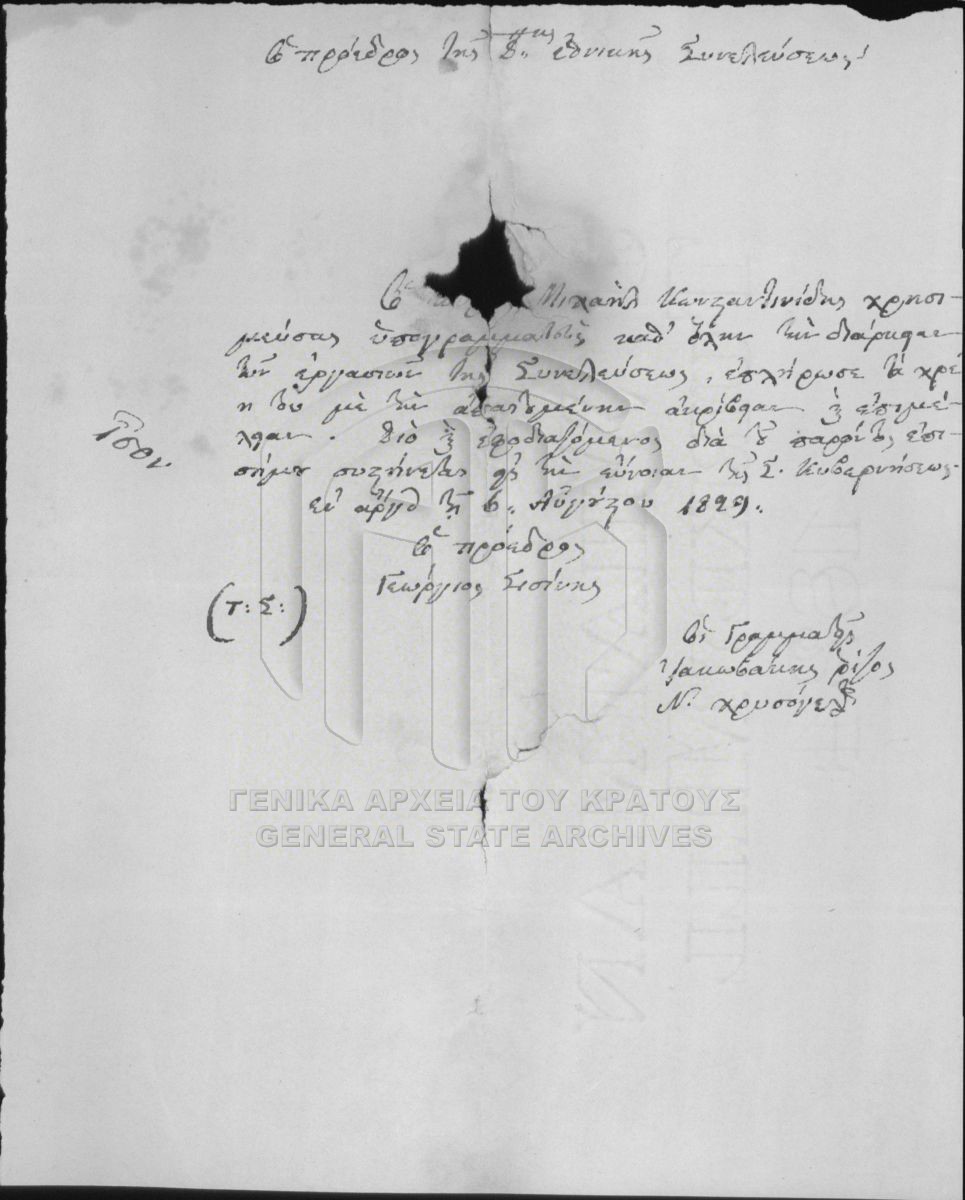 Ὁ πρόεδρος τῆς Δ.ης ἐθνικῆς Συνελεύσεως!
Ὁ Μιχαὴλ Κωνσταντινίδης χρησι-
μεύσας ὑπογραμματεὺς καθ' ὅλην τὴν διάρκειαν
τῶν ἐργασιῶν τῆς Συνελεύσεως, ἐπλήρωσε τὰ χρέ
η του μὲ τὴν ἀπαιτουμένην ἀκρίβειαν καὶ ἐπιμέ-
λειαν. Διὸ καὶ ἐφοδιαζόμενος διὰ τοῦ παρόντος ἐπι-
σήμου συστήνεται εἰς τὴν εὔνοιαν τῆς Σ. Κυβερνήσεως.
Ἴσον
ἐν Ἄργει τῇ 6. Αὐγούστου 1829.
Ὁ πρόεδρος
Γεώργιος Σισίνης
(Τ: Σ:)
Οἱ Γραμματεῖς
Ἰακωβάκης ῥίζος
Ν. χρυσόγελος
ΓΕΝΙΚΑ ΑΡΧΕΙΑ ΤΟΥ ΚΡΑΤΟΥΣ
GENERAL STATE ARCHIVES